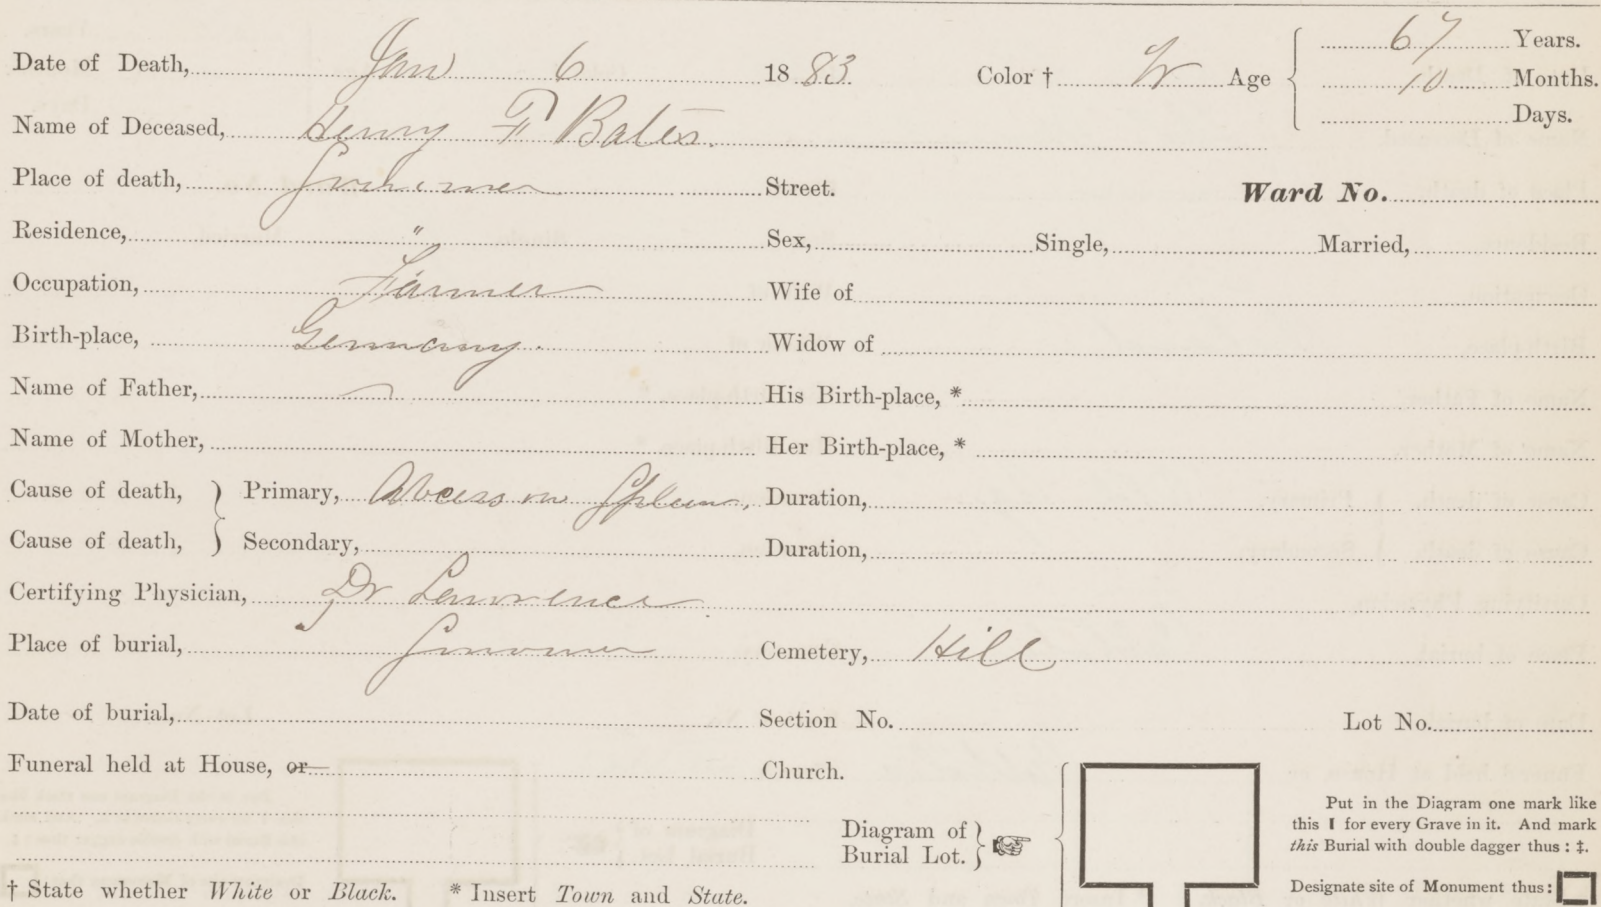 Date of Death, Jan 6 1883 Color † W Age 67 Years.
10 Months.
Days.
Name of Deceased, Henry F Bates.
Place of death, Street. Ward No.
Residence, " Sex, Single, Married,
Occupation, Farmer Wife of
Birth-place, Germany. Widow of
Name of Father, His Birth-place, *
Name of Mother, Her Birth-place, *
Cause of death, } Primary, Abcess on Spleen, Duration,
Cause of death, } Secondary, Duration,
Certifying Physician, Dr Lawrence
Place of burial, Cemetery, Hill
Date of burial, Section No. Lot No.
Funeral held at House, or Church.
Put in the Diagram one mark like
this I for every Grave in it. And mark
this Burial with double dagger thus : ‡.
Diagram of
Burial Lot. }
Designate site of Monument thus :
† State whether White or Black. * Insert Town and State.